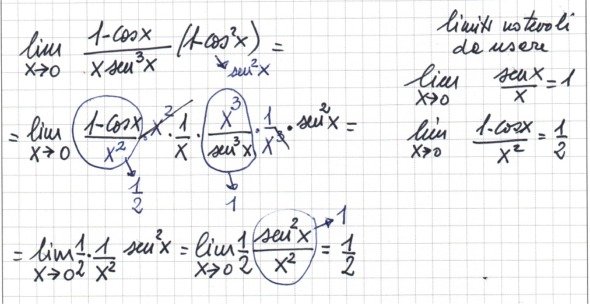 lim x→0 1-cosx / x sen³x (1-cos²x) =
→ sen²x
= lim x→0 1-cosx / x² · x² · 1/x · x³ / sen³x · 1/x³ · sen²x =
→ 1/2 → 1
= lim x→0 1/2 · 1/x² sen²x = lim x→0 1/2 sen²x / x² → 1 = 1/2
limiti notevoli
da usare
lim x→0 senx / x = 1
lim x→0 1-cosx / x² = 1/2